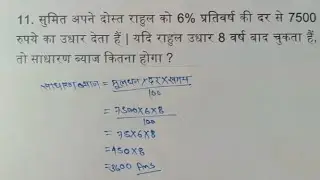 11. सुमित अपने दोस्त राहुल को 6% प्रतिवर्ष की दर से 7500
रुपये का उधार देता हैं | यदि राहुल उधार 8 वर्ष बाद चुकता हैं,
तो साधारण ब्याज कितना होगा ?
साधारण ब्याज = मूलधन X दर X समय
100
= 7500X6X8
100
= 75X6X8
= 450X8
= 3600 Ans